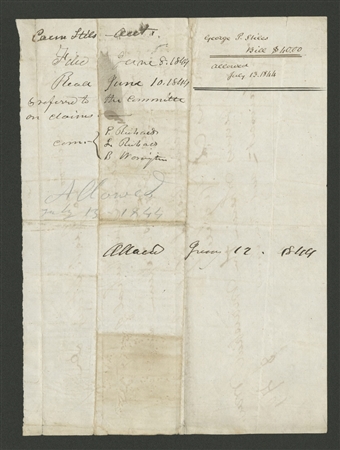 Acct.
Filed June 8. 1844
Read June 10. 1844
& referred to the Committe
on claims
com
P Richards
L Richards
Allowed
July 13 1844
Allowed June 12. 1844
George P. Stiles
Bill $40.00
allowed
July 13. 1844